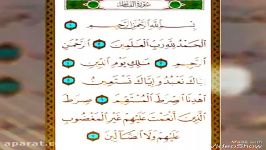 سورة الفاتحة
بِسْمِ اللَّهِ الرَّحْمَنِ الرَّحِيمِ
الْحَمْدُ لِلَّهِ رَبِّ الْعَالَمِينَ الرَّحْمَنِ
الرَّحِيمِ مَالِكِ يَوْمِ الدِّينِ
إِيَّاكَ نَعْبُدُ وَإِيَّاكَ نَسْتَعِينُ
اهْدِنَا الصِّرَاطَ الْمُسْتَقِيمَ صِرَاطَ
الَّذِينَ أَنْعَمْتَ عَلَيْهِمْ غَيْرِ الْمَغْضُوبِ
عَلَيْهِمْ وَلَا الضَّالِّينَ
aparat.com
Made with
VideoShow